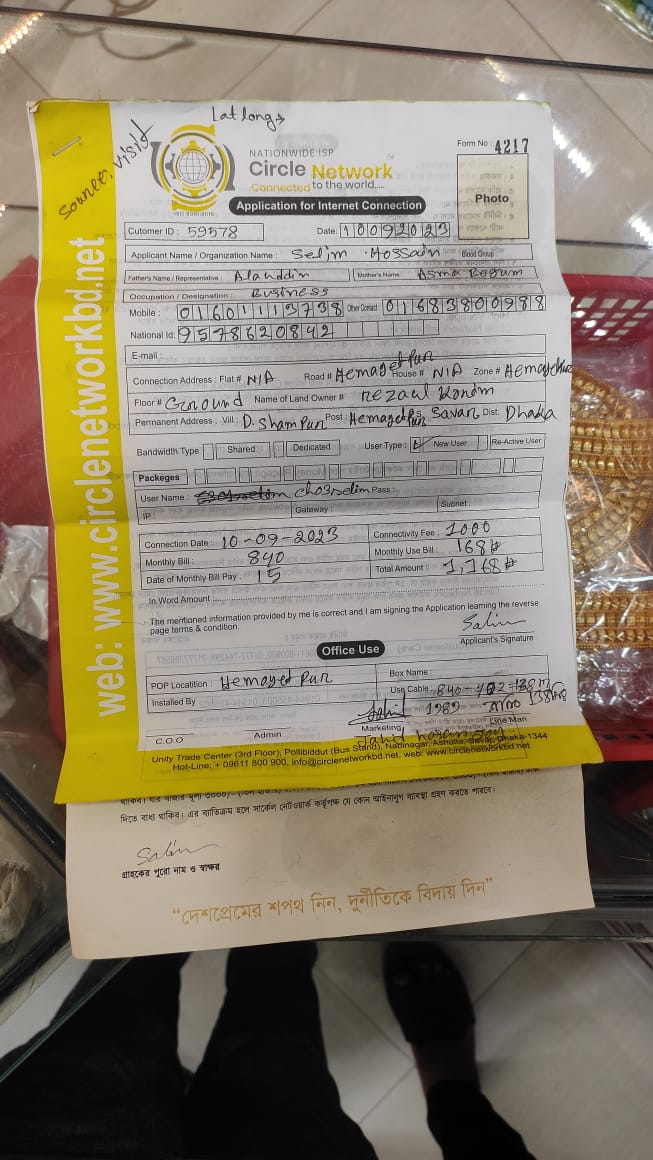 Lat long→
Source: visit
NATIONWIDE ISP
Circle Network
Connected to the world.....
ISO 9001:2015
Form No : 4217
Photo
Application for Internet Connection
Cutomer ID : 59578 Date: 10092023
Applicant Name / Organization Name : Selim Hossain Blood Group :
Father's Name / Representative : Alauddin Mother's Name : Asma Begum
Occupation / Designation : Business
Mobile : 01601113738 Other Contact : 01683800988
National Id: 9578620842
E-mail :
Connection Address : Flat # N/A Road # Hemayetpur House # N/A Zone #
Floor # Ground Name of Land Owner # rezaul
Permanent Address : Vill : D. Shampur Post : Savar Dist: Dhaka
Bandwidth Type Shared Dedicated User Type : New User Re-Active User
Packeges
User Name : cho3selim Pass :
IP : Gateway : Subnet :
Connection Date : 10-09-2023 Connectivity Fee : 1000
Monthly Bill : 840 Monthly Use Bill : 168
Date of Monthly Bill Pay : 15 Total Amount : 1,168
In Word Amount
The mentioned information provided by me is correct and I am signing the Application learning the reverse
page terms & condition.
Salim
Applicant's Signature
Office Use
POP Locatition : Hemayed Pur Box Name :
Installed By Use Cable : 840-702=138m
1989
C.O.O Admin Marketing Line Man
Unity Trade Center (3rd Floor), Pollibiddut (Bus Stand), Nabinagar, Ashulia, Savar, Dhaka-1344
Hot-Line: + 09611 800 900, info@circlenetworkbd.net, web: www.circlenetworkbd.net
web: www.circlenetworkbd.net
দিতে বাধ্য থাকিব। এর ব্যতিক্রম হলে সার্কেল নেটওয়ার্ক কর্তৃপক্ষ যে কোন আইনানুগ ব্যবস্থা গ্রহণ করতে পারবে।
Salim
গ্রাহকের পুরো নাম ও স্বাক্ষর
“দেশপ্রেমের শপথ নিন, দুর্নীতিকে বিদায় দিন”